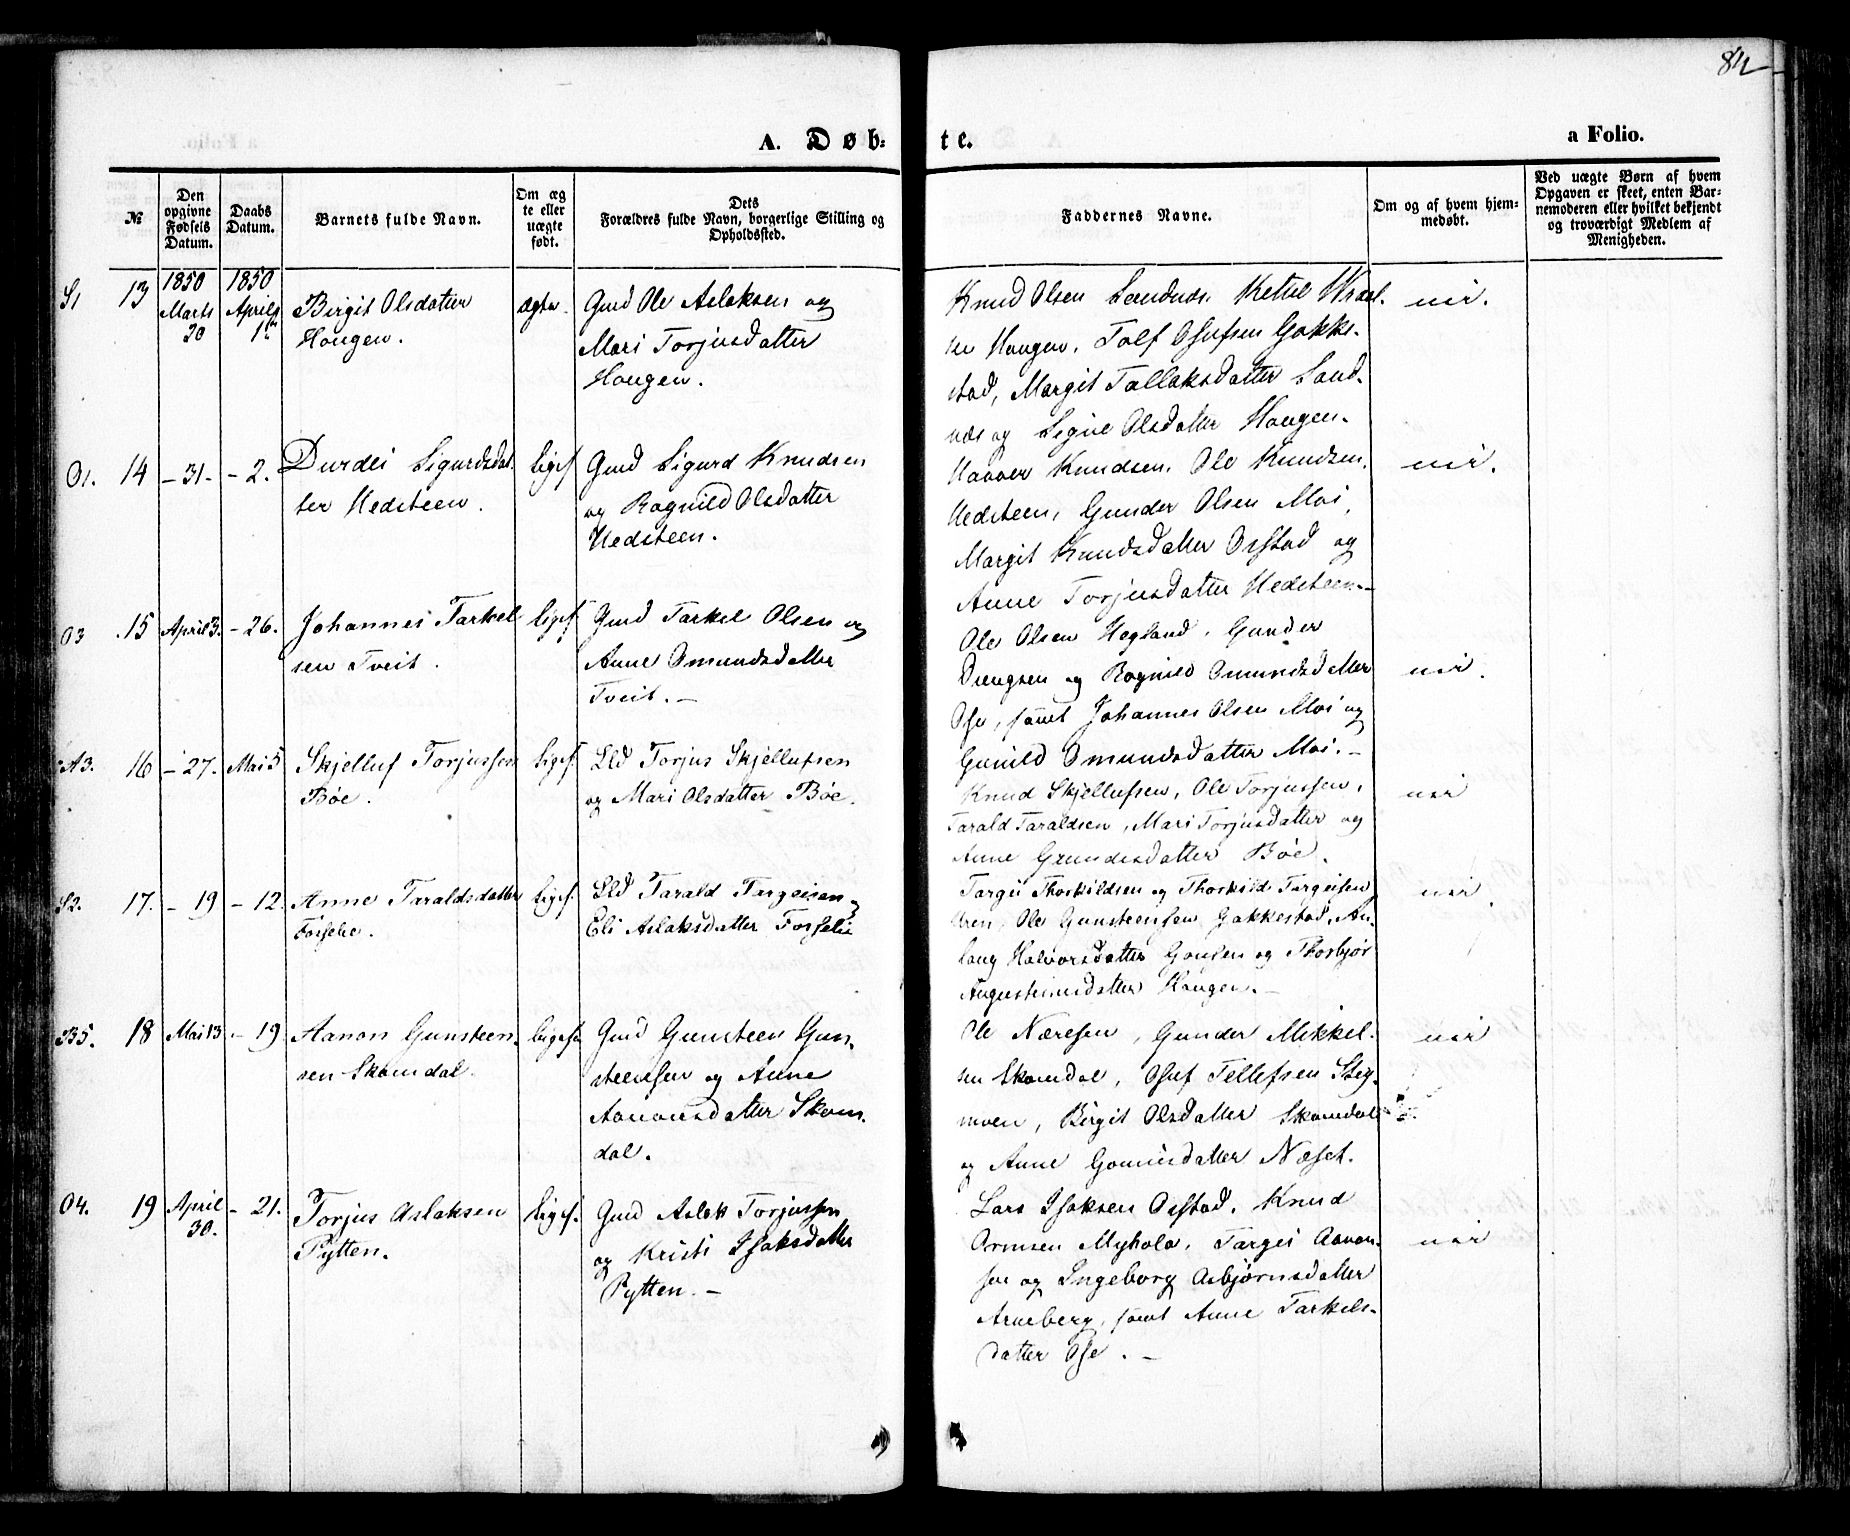 84
A. Døb-
te.
a Folio.
№
Den opgivne Fødsels Datum.
Daabs Datum.
Barnets fulde Navn.
Om ægte eller uægte født.
Dets Forældres fulde Navn, borgerlige Stilling og Opholdssted.
Faddernes Navne.
Om og af hvem hjemmedøbt.
Ved uægte Børn af hvem Opgaven er skeet, enten Barnemoderen eller hvilket bekjendt og troværdigt Medlem af Menigheden.
S1 13 1850 Marts 20 1850 April 1ste
Birgit Olsdatter
Hougen.
ægte.
Gmd Ole Aslaksen og
Mari Torjusdatter
Hougen.
Knud Olsen Sandnes. Ketil
Hougen, Tolf Osufsen Gakke-
stad, Margit Tallaksdatter Sand-
næs og Signe Olsdatter Hougen.
nei.
O1. 14 - 31. - 2.
Durdei Sigurdsdat-
ter Hedsteen.
ligef
Gmd Sigurd Knudsen
og Ragnild Olsdatter
Hedsteen.
Haavor Knudsen. Ole Knudsen.
Hedsteen, Gunder Olsen Moi,
Margit Knudsdatter Ofstad og
Anne Torjusdatter Hedsteen.-
nei.
O3 15 April 3. - 26.
Johannes Tarkel-
sen Tveit.
ligef
Gmd Tarkel Olsen og
Anne Omundsdatter
Tveit. -
Ole Olsen Hegland, Gunder
Drengsen og Ragnild Omundsdatter
Ose, samt Johannes Olsen Moi og
Gunild Omundsdatter Moi. -
nei.
A3. 16 - 27. Mai 5
Skjelluf Torjussen
Bøe.
ligef
Lld Torjus Skjellufsen
og Mari Olsdatter Bøe.
Knud Skjellufsen, Ole Torjussen,
Tarald Taraldsen, Mari Torjusdatter og
Anne Grundesdatter Bøe.
nei
S2. 17. - 19 - 12.
Anne Taraldsdatter
Forselie.
ligef.
Lld Tarald Targeisen og
Eli Aslaksdatter Forselie
Targei Thorkildsen og Thorkild Targeisen
Ole Gunsteensen Gakkestad, An-
laug Halvorsdatter og Thorbjør
Augustinusdatter Hougen. -
nei.
B5. 18 Mai 13 - 19.
Aanon Gunsteen-
sen Skomdal.
ligef.
Gmd Gunsteen Gun-
steensen og Anne
Aanonsdatter Skom-
dal.
Ole Næresen, Gunder Mikkel-
sen Skomdal, Osuf Tellefsen Steg-
moen, Birgit Olsdatter Skomdal
og Anne Gunnersdatter Næset.
nei
O4. 19 April 30. - 21.
Torjus Aslaksen
Pytten.
ligef.
Gmd Aslak Torjussen
og Kristi Isaksdatter
Pytten. -
Lars Isaksen Ofstad, Knud
Ormsen Myhola, Targei Aanon-
sen og Ingeborg Asbjørnsdatter
Arneberg, samt Anne Tarkels-
datter Ose. -
nei